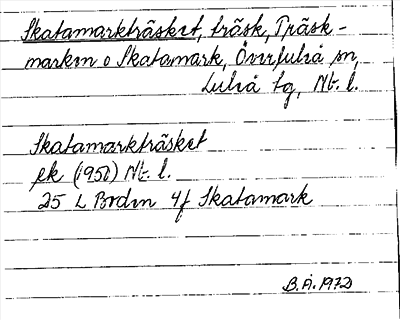 Skatamarkträsket, träsk, Träsk-
marken o Skatamark, Överluleå sn,
Luleå tg, Nb. l.
Skatamarkträsket
ek (1950) Nb. l.
25 L Boden 4f Skatamark
B.Å. 1972